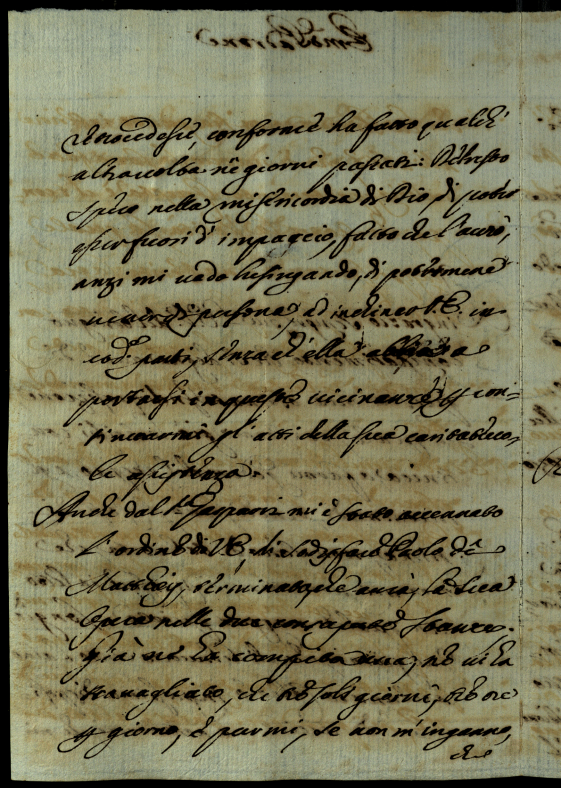 retrocedesse, conforme ha fatto qualch'
altra volta ne' giorni passati: Del resto
spero nella misericordia di Dio, di poter
esser fuori d' impaccio, fatto che l' avrò,
anzi mi vado lusingando, di potermene
venir di persona, ad inchinar V.E. in
cod.e parti, senza ch' ella abbia a
portarsi in queste vicinanze p con=
tinuarmi gl' atti della sua caritatevo=
le assistenza.
Anche dal S. Gasparini mi è stato accennato
l' ordine di V.E. di sodisfare Paolo de
Matteis, terminata che avrà, la sua
Opera nelle due consapute stanze.
Già ne ha compita una, nè vi ha
travagliato, che tre soli giorni, tre ore
p giorno, e parmi, se non m' inganno,
che